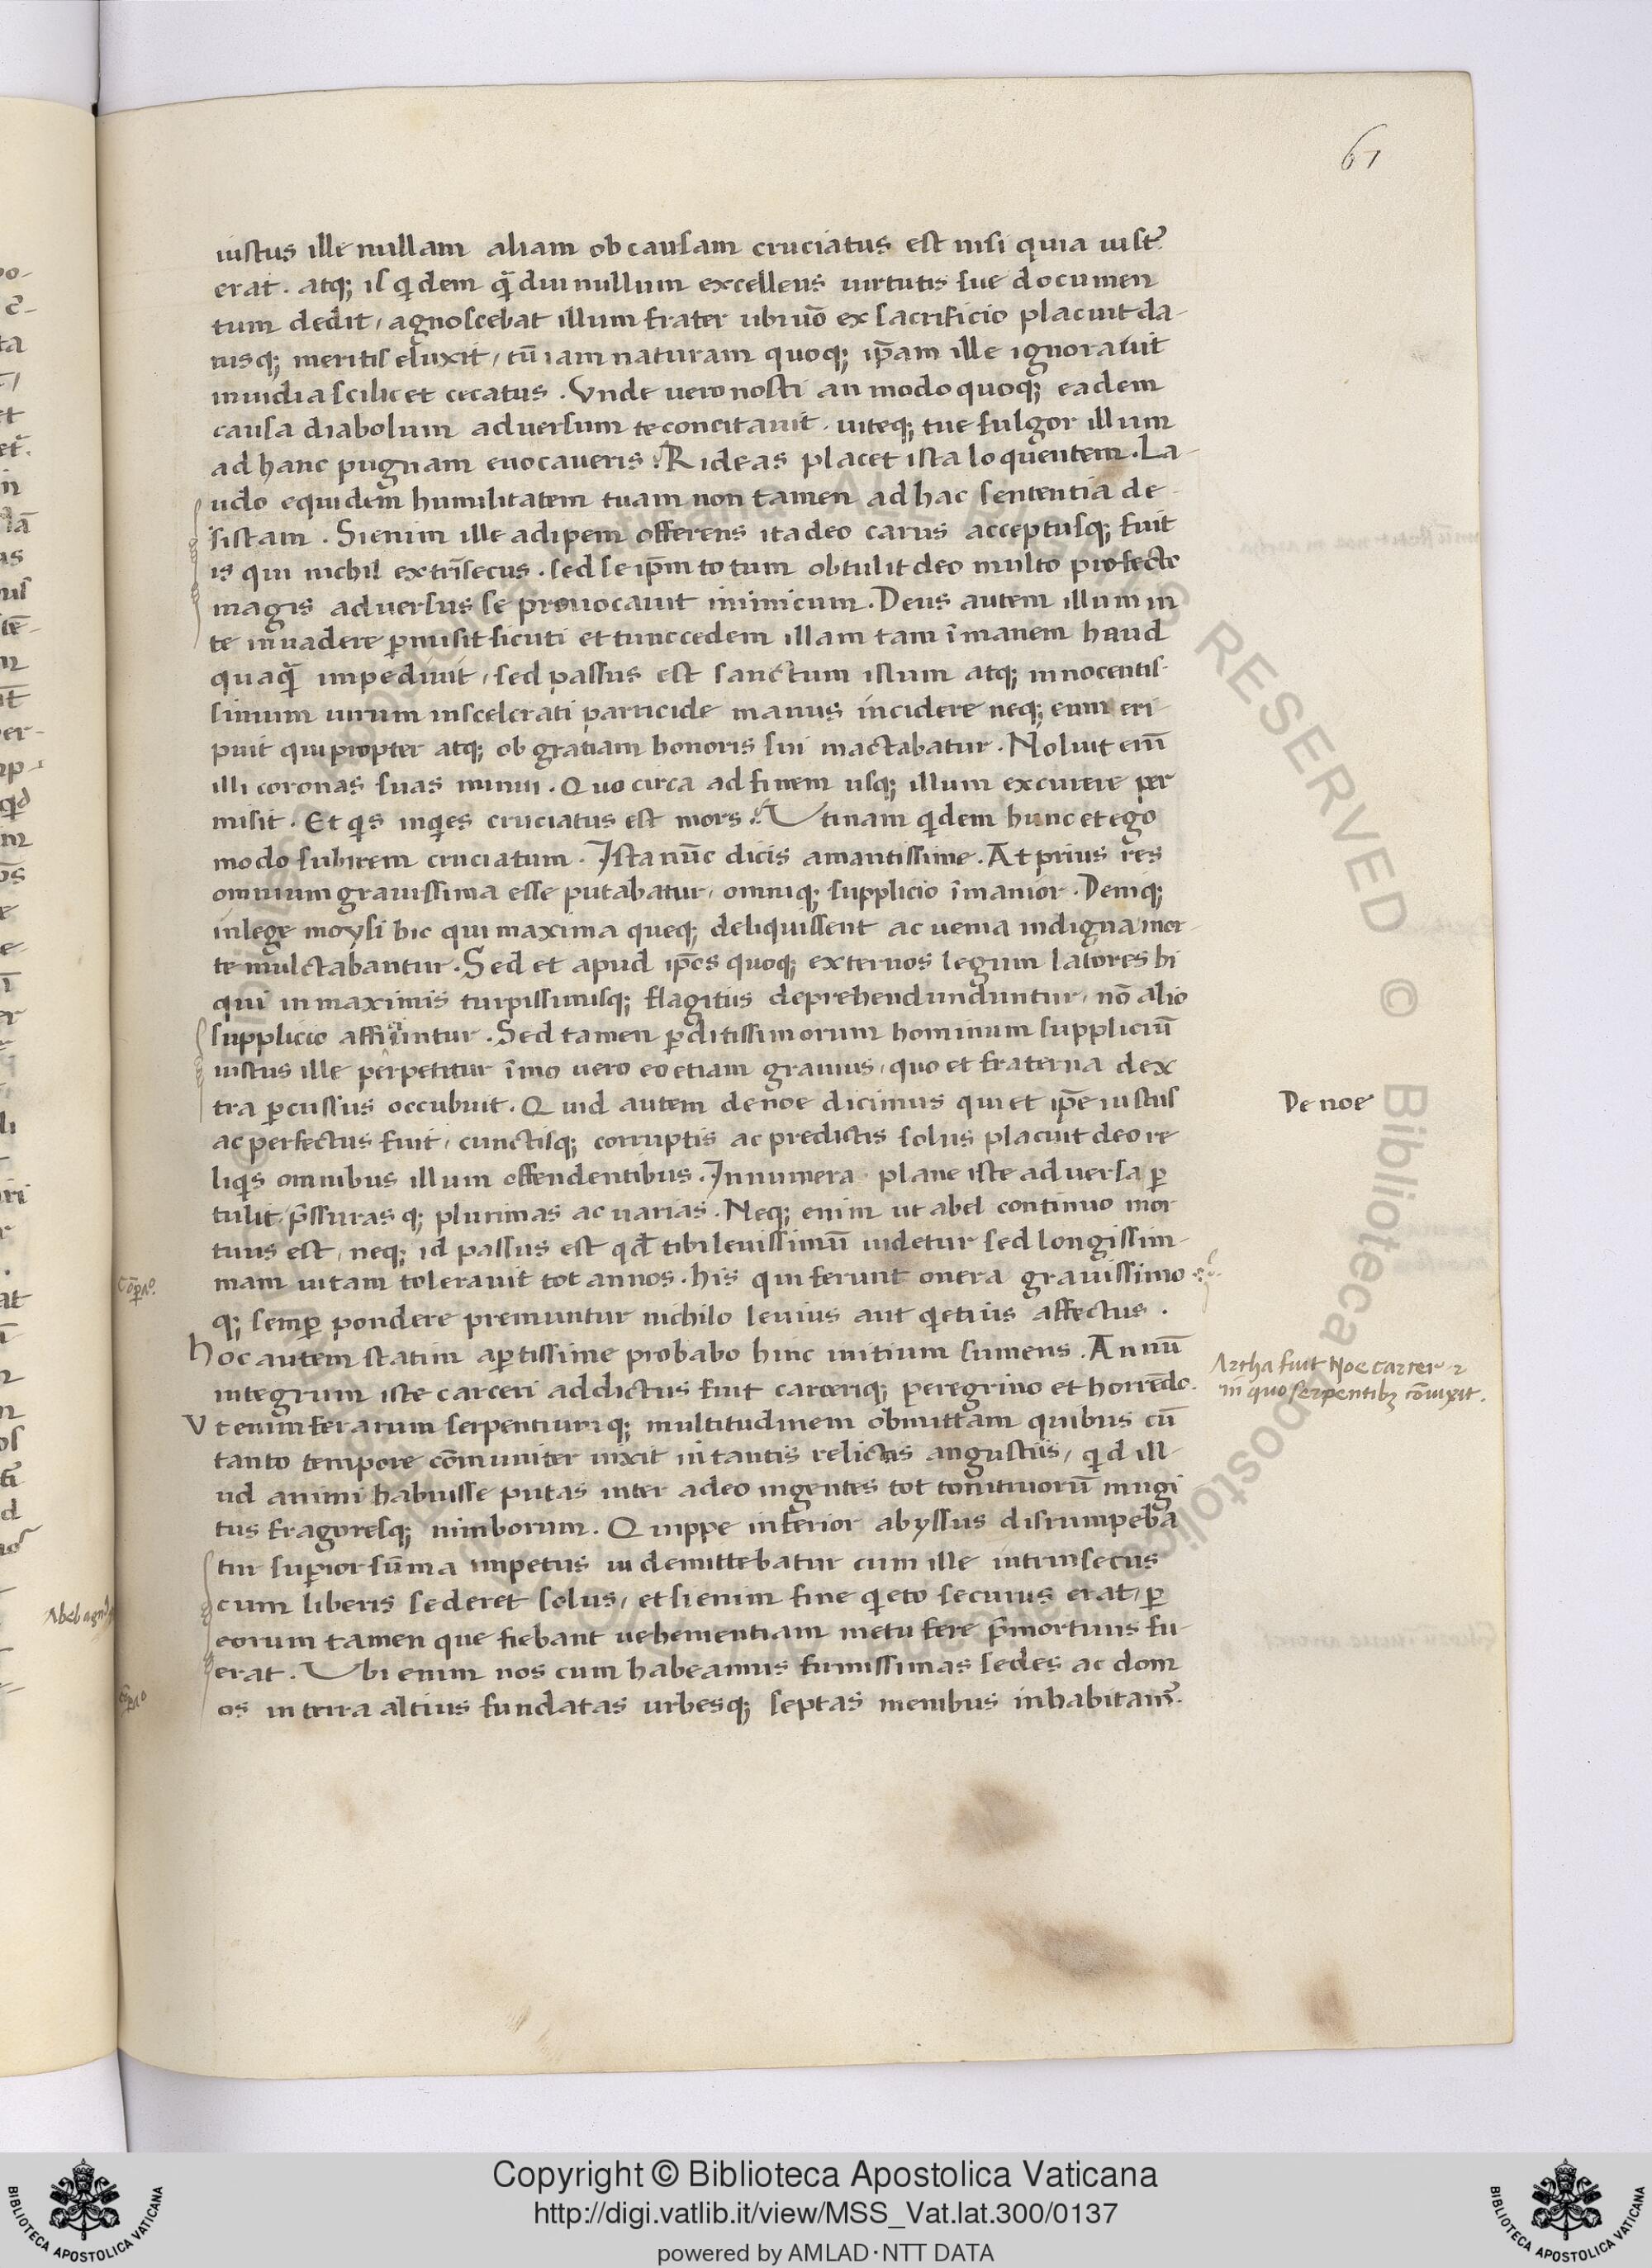 67
iustus ille nullam aliam ob causam cruciatus est nisi quia iust᷒
erat . atq; is qͥdem qͣ̄diu nullum excellens uirtutis sue documen
tum dedit, agnoscebat illum frater ubi uō ex sacrificio placuit da-
nisq; meritis eluxit, tū iam naturam quoq; ip̄am ille ignorauit
inuidia scilicet cecatus . Vnde uero nosti an modo quoq; eadem
causa diabolum aduersum te concitauit . uiteq; tue fulgor illum
ad hanc pugnam euocaueris ? Rideas placet ista loquentem . La-
udo equidem humilitatem tuam non tamen ad hac sententia de-
sistam . Si enim ille adipem offerens ita deo carus acceptusq; fuit
is qui nichil extrīsecus . sed se ip̄m totum obtulit deo multo profecto
magis aduersus se prouocauit inimicum . Deus autem illum in
te inuadere ꝑmisit sicuti et tunc cedem illam tam īmanem haud
quaqͣ̄ impediuit, sed passus est sanctum istum atq; innocentis-
simum uirum in scelerati parricide manus incidere neq; eum eri-
puit qui propter atq; ob gratiam honoris sui mactabatur . Noluit eni̅
illi coronas suas minui . Quo circa ad finem usq; illum excurere per
misit . Et qͥs inqͥes cruciatus est mors ? Vtinam qͥdem hunc et ego
modo subirem cruciatum . Ista nūc dicis amantissime . At prius res
omnium grauissima esse putabatur, omniq; supplicio īmanior . Deniq;
in lege moysi hic qui maxima queq; deliquissent ac uenia indigna mor-
te mulctabantur . Sed et apud ip̄os quoq; externos legum latores hi
qui in maximis turpissimisq; flagitiis deprehendunduntur, nō alio
supplicio afficiuntur . Sed tamen ꝑditissimorum hominum suppliciū
iustus ille perpetitur īmo uero eo etiam grauius, quo et fraterna dex
tra ꝑcussus occubuit . Quid autem de noe dicimus qui et ip̄e iustus
De noe
ac perfectus fuit, cunctisq; corruptis ac predictis solus placuit deo re
liqͥs omnibus illum offendentibus . Innumera plane iste aduersa ꝑ
tulit, p̄ssuras q; plurimas ac uarias . Neq; enim ut abel continuo mor
tuus est, neq; id passus est qd̄ tibi leuissimū uidetur sed longissim-
mam uitam tolerauit tot annos . his qui ferunt onera grauissimo
q; semꝑ pondere premuntur nichilo leuius aut qͥetius affectus .
hoc autem statim aꝑtissime probabo hinc initium sumens . Annū
Archa fuit Noe carcer
integrum iste carceri addictus fuit carceriq; ꝑegrino et horrēdo .
in quo serpentibꝫ cōuixit .
Vt enim ferarum serpentiumq; multitudinem obmittam quibus cū
tanto tempore cōmuniter uixit in tantis relictus angustiis, qͥd ill-
ud animi habuisse putas inter adeo ingentes tot tonitruorū mugi
tus fragoresq; nimborum . Quippe inferior abyssus disrumpeba
tur suꝑior sūma impetus ui demittebatur cum ille intrinsecus
cum liberis sederet solus, et si enim fine qͥeto securus erat, ꝑ
eorum tamen que fiebant uehementiam metu fere p̄mortuus fu-
erat . Vbi enim nos cum habeamus firmissimas sedes ac dom
os in terra altius fundatas urbesq; septas menibus inhabitam᷒ .
Copyright © Biblioteca Apostolica Vaticana
http://digi.vatlib.it/view/MSS_Vat.lat.300/0137
powered by AMLAD·NTT DATA
BIBLIOTECA APOSTOLICA VATICANA
BIBLIOTECA APOSTOLICA VATICANA